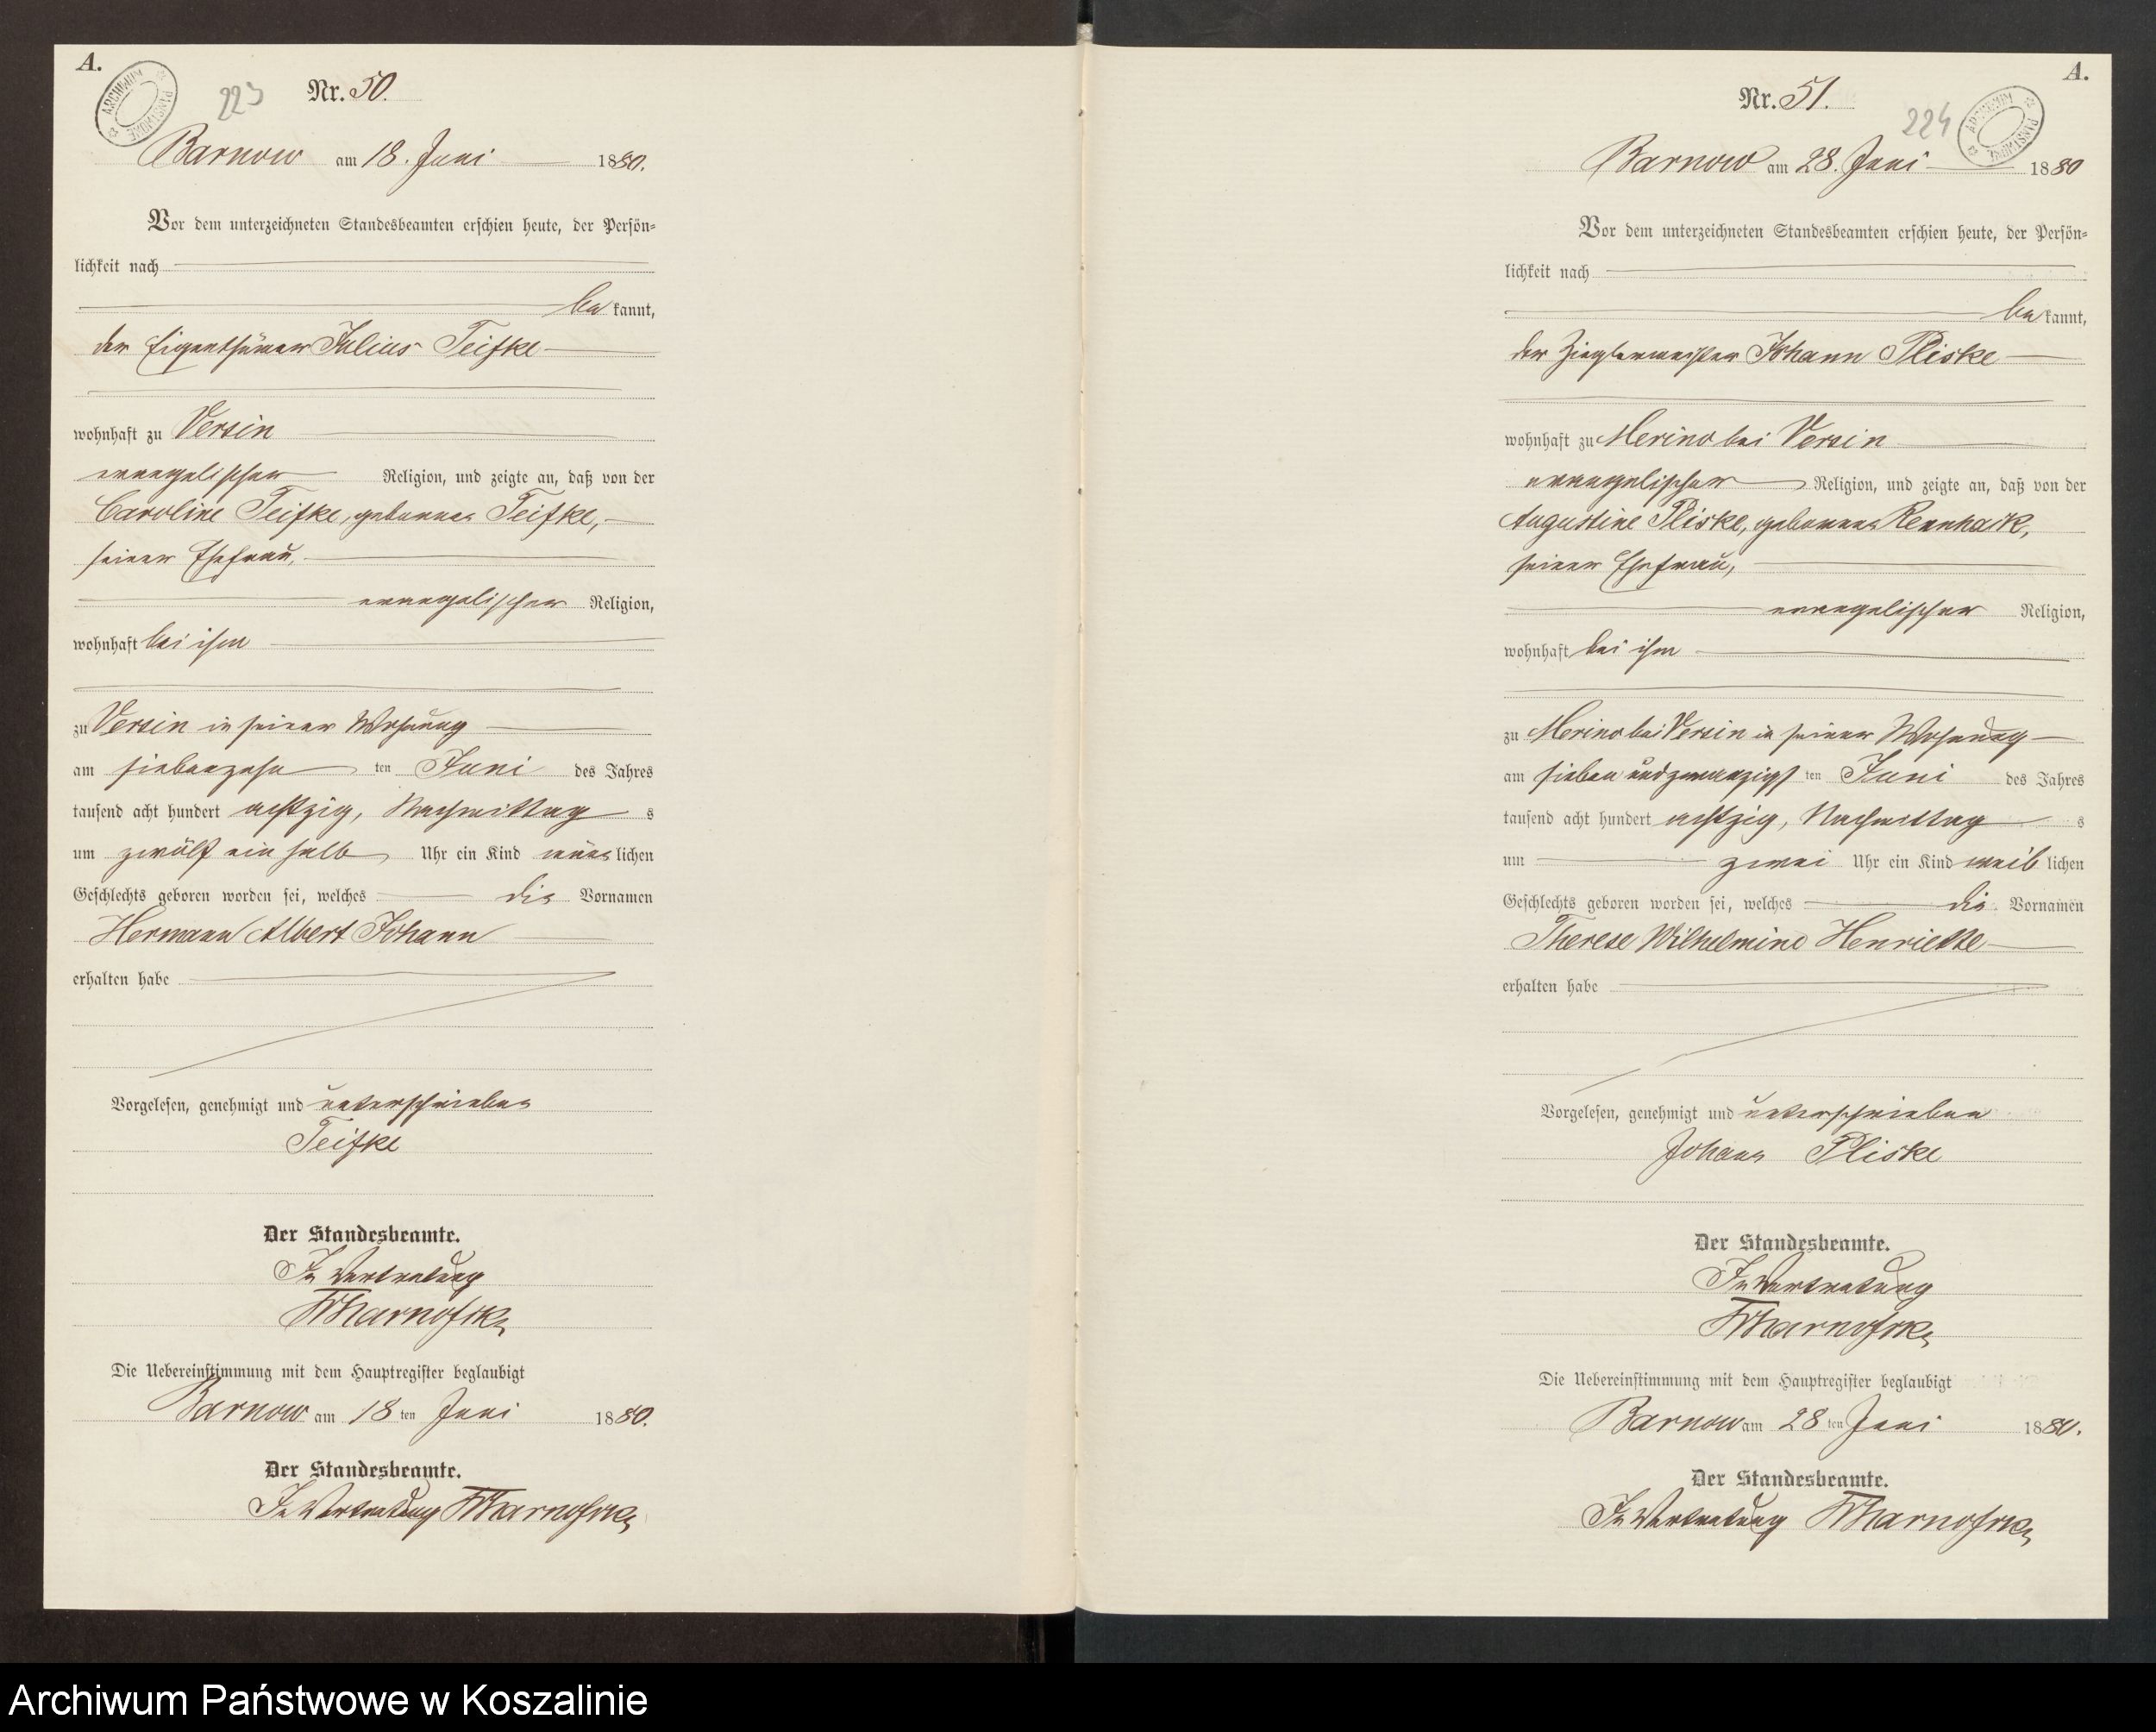 A.
ARCHIWUM PAŃSTWOWE
223
Nr. 50.
Barnow am 18. Juni 1880.
Vor dem unterzeichneten Standesbeamten erschien heute, der Persön=
lichkeit nach
be kannt,
der Eigenthümer Julius Teifke
wohnhaft zu Versin
evangelischer Religion, und zeigte an, daß von der
Caroline Teifke, geborenen Teifke,
seiner Ehefrau,
evangelischer Religion,
wohnhaft bei ihm
zu Versin in seiner Wohnung
am siebenzehn ten Juni des Jahres
tausend acht hundert achtzig, Nachmittag s
um zwölf ein halb Uhr ein Kind männ lichen
Geschlechts geboren worden sei, welches die Vornamen
Hermann Albert Johann
erhalten habe
Vorgelesen, genehmigt und unterschrieben
Teifke
Der Standesbeamte.
In Vertretung
Die Uebereinstimmung mit dem Hauptregister beglaubigt
Barnow am 18 ten Juni 1880.
Der Standesbeamte.
In Vertretung
A.
ARCHIWUM PAŃSTWOWE
224
Nr. 51.
Barnow am 28. Juni 1880
Vor dem unterzeichneten Standesbeamten erschien heute, der Persön=
lichkeit nach
be kannt,
der Zieglermeister Johann Pliske
wohnhaft zu Merino bei Versin
evangelischer Religion, und zeigte an, daß von der
Augustine Pliske, geborenen Rennhack,
seiner Ehefrau,
evangelischer Religion,
wohnhaft bei ihm
zu Merino bei Versin in seiner Wohnung
am sieben und zwanzigs ten Juni des Jahres
tausend acht hundert achtzig, Nachmittag s
um zwei Uhr ein Kind weib lichen
Geschlechts geboren worden sei, welches die Vornamen
Therese Wilhelmine Henriette
erhalten habe
Vorgelesen, genehmigt und unterschrieben
Johann Pliske
Der Standesbeamte.
In Vertretung
Die Uebereinstimmung mit dem Hauptregister beglaubigt
Barnow am 28 ten Juni 1880.
Der Standesbeamte.
In Vertretung
Archiwum Państwowe w Koszalinie